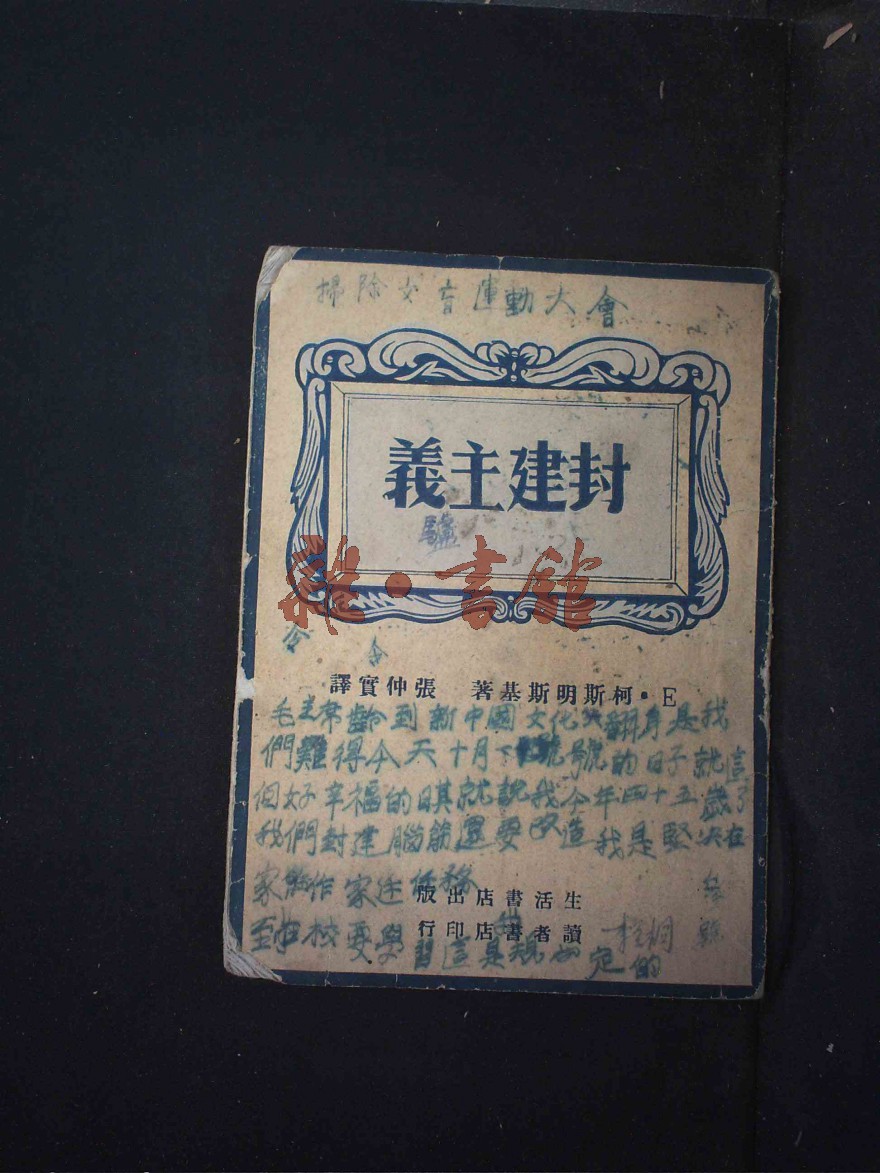 掃除文盲運動大會
封建主義
驢
雜·書館
E·柯斯明斯基著 張仲實譯
毛主席齡到新中國文化翻身是我
們難得今天十月號的日子就這
個好幸福的日其就說我今年四十五歲了
我們封建腦筋還要改造我是堅決在
家作家任務
生活書店出版
至校要學習這是規定的
讀者書店印行